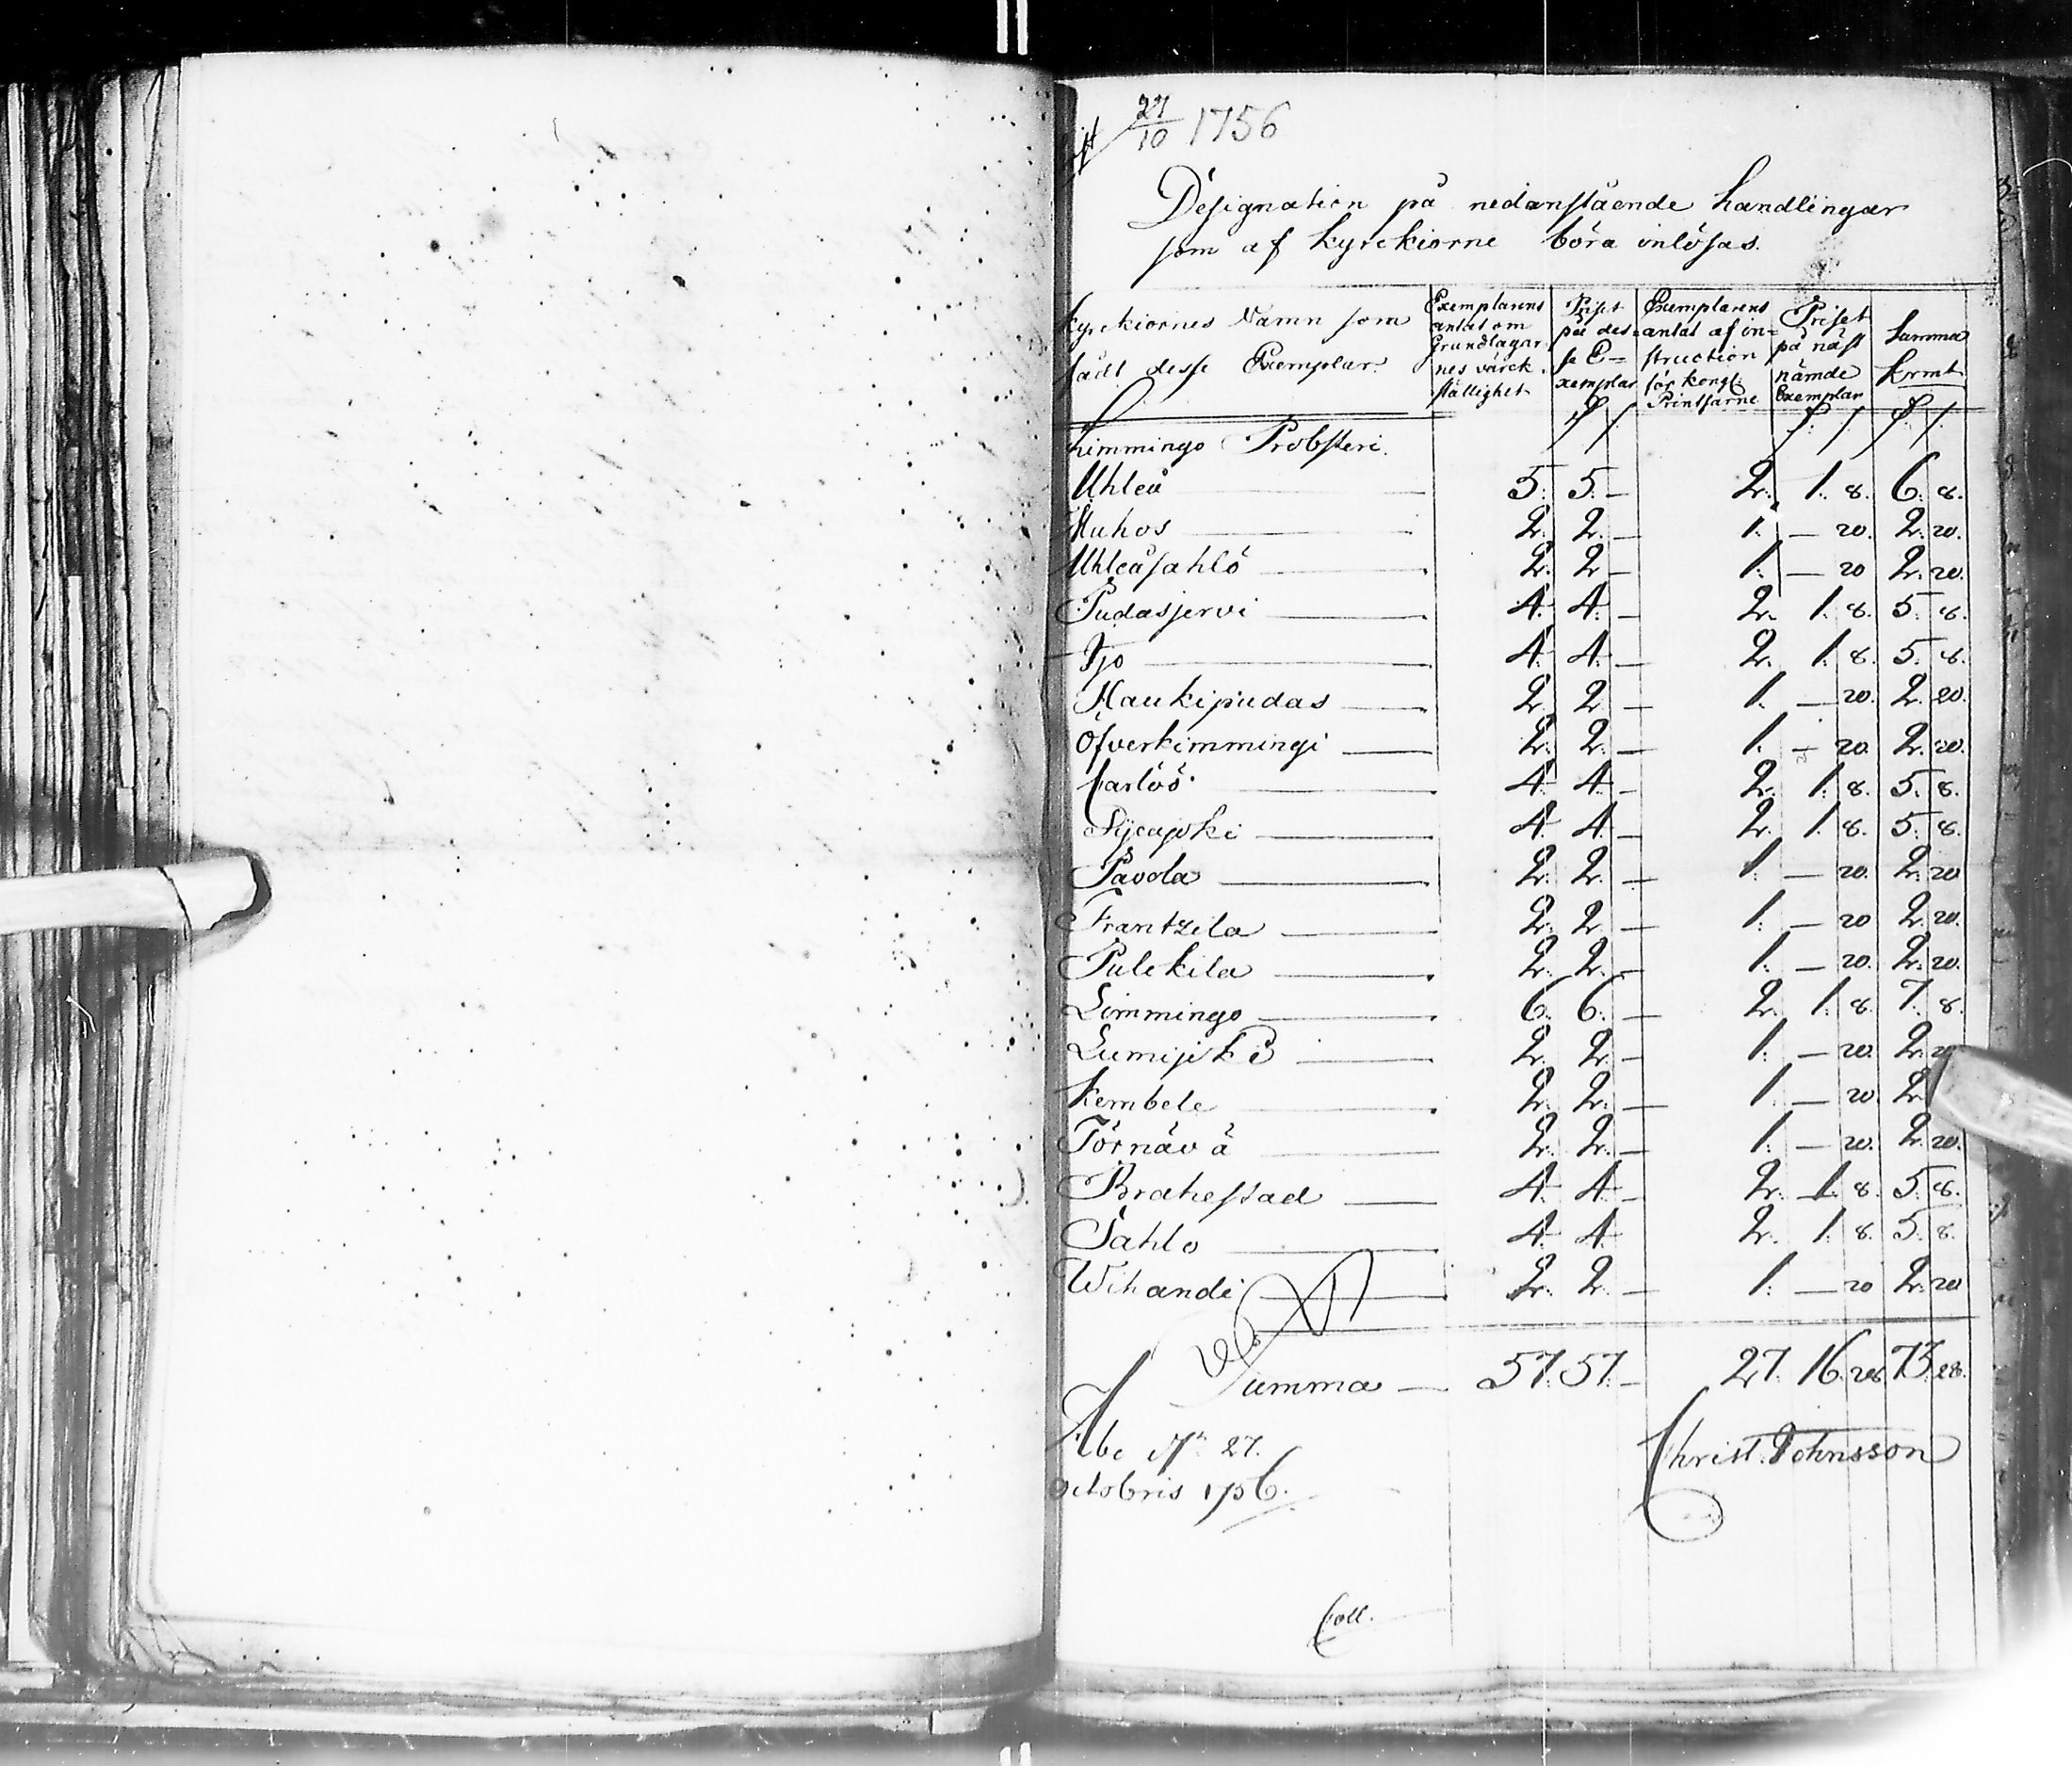 27/10 1756
Designation på nedanstående Handlingar
som af kyrckiorne böra inlösas.
Kyrckiornes Namn som
fådt desse Exemplar.
Exemplarens
antal om
Grundlagar-
nes värck-
ställighet
Priset
på des-
se E-
xemplar
Exemplarens
antal af in-
struction
för kongl.
Printsarne
Priset
på näst
nämde
Exemplar
Summa
krmt
Limmingo Probsteri.
Uhleå — 5. 5. — 2. 1. 8. 6. 8.
Muhos — 2. 2. — 1. — 20. 2. 20.
Uhleåsahlo — 2. 2. — 1. — 20 2. 20.
Pudasjervi — 4. 4. — 2. 1. 8. 5. 8.
Ijo — 4. 4. — 2. 1. 8. 5. 8.
Haukipudas — 2. 2. — 1. — 20. 2. 20.
Öfverkimmingi — 2. 2. — 1. — 20. 2. 20.
Carlöö — 4. 4. — 2. 1. 8. 5. 8.
Sijcajoki — 4. 4. — 2. 1. 8. 5. 8.
Pavola — 2. 2. — 1. — 20. 2. 20
Frantzila — 2. 2. — 1. — 20 2. 20.
Pulckila — 2. 2. — 1. — 20. 2. 20.
Limmingo — 6. 6. — 2. 1. 8. 7. 8.
Lumijoki — 2. 2. — 1. — 20. 2. 20
Kembele — 2. 2. — 1. — 20. 2.
Törnävä — 2. 2. — 1. — 20. 2. 20.
Brahestad — 4. 4. — 2. 1. 8. 5. 8.
Sahlo — 4. 4. 2. 1. 8. 5. 8.
Wihandi — 2. 2. — 1. — 20 2. 20
Summa — 57. 57. — 27. 16. 28 73. 28.
Åbo d. 27.
Octobris 1756.
Christ. Johnsson
Coll.